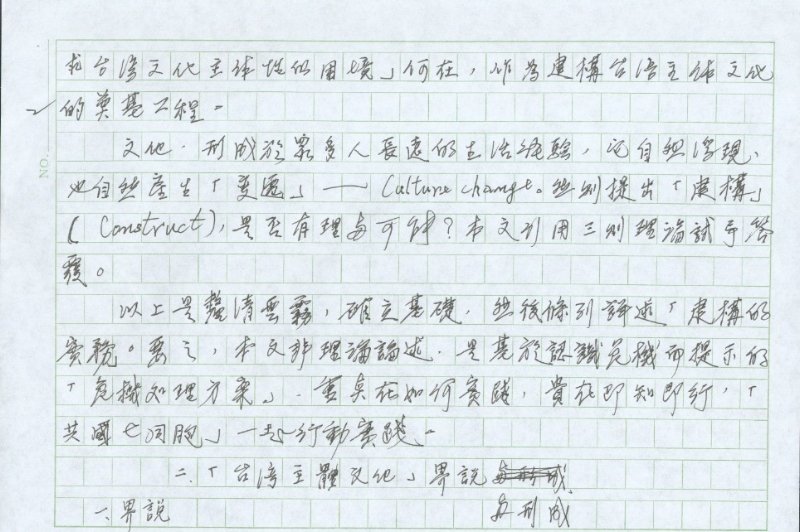 求台湾文化主体性的困境」何在，作為建構台湾主体文化
的奠基工程。
文化．形成於眾多人長遠的生活經驗，它自然浮現，
也自然產生「變遷」—— Culture change。然則提出「建構」
( Construct)，是否有理與可能？本文引用三則理論試予答
覆。
以上是釐清雲霧，確立基礎，然後條列評述「建構的
實務。要之，本文非理論論述，是基於認識危機而提示的
「危機処理方案」．重点在如何實踐，貴在即知即行，「
共國七同胞」一起行動實踐。
二、「台湾主體文化」界說
與形成
一、界說
NO.